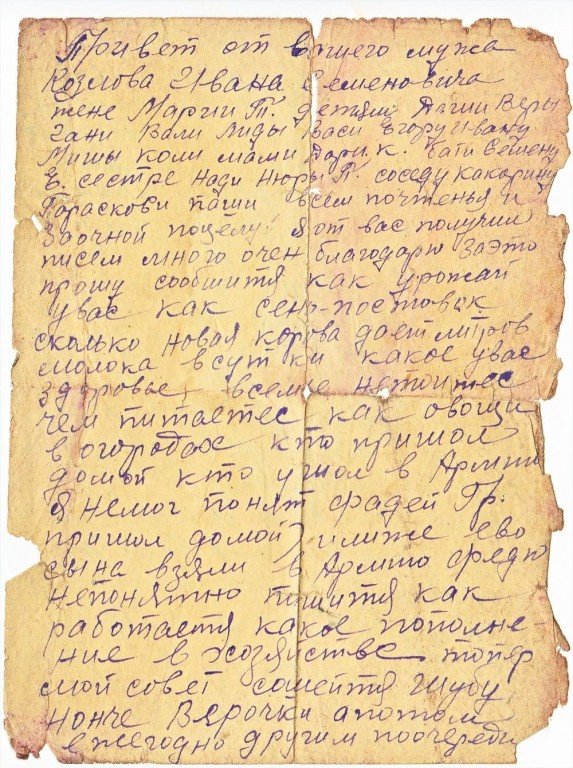 Привет от вашего мужа
Козлова Ивана Семеновича
жене Марии Т. детям Веры
Гани Вали Лиды Васи Егору Ивану
Мишы коли мами Дари. К. бати Семену
Е. сестре Нади Нюры Г. соседу
паши всем почтенья и
Заочной поцелуй я от вас получил
писем много очен благодарю заэто
прошу сообшитя как урожай
увас как сено-поставок
сколько новая корова дает литров
молока всутки какое увас
здоровье всемье
чем питаетес как овощи
вогородах кто пришол
домой кто ушол в Армию
я немог понят Гр.
пришол домой илиже ево
сына взяли в Армию
непонятно пишитя как
работаетя какое пополне-
ние в хозяйстве топер
мой совет сошейтя шубу
нонче Верочки апотом
ежегодно другим поочереди